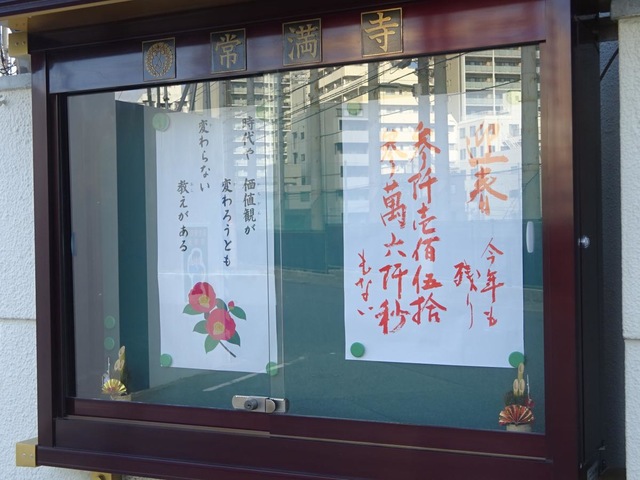 常満寺
迎春
今年も
残り
参阡壱佰伍拾
参萬六阡秒
もない
時代や 価値観が
変わろうとも
変わらない
教えがある